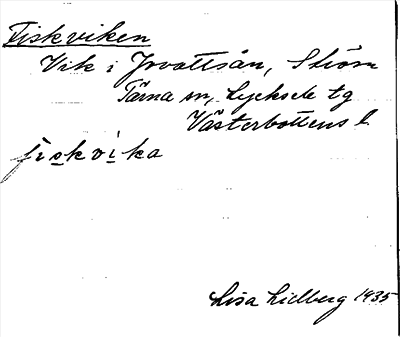 Fiskviken
Vik i Jovattsån, Ström
Tärna sn, Lycksele tg
Västerbottens l
fiskvika
Lisa Lidberg 1935